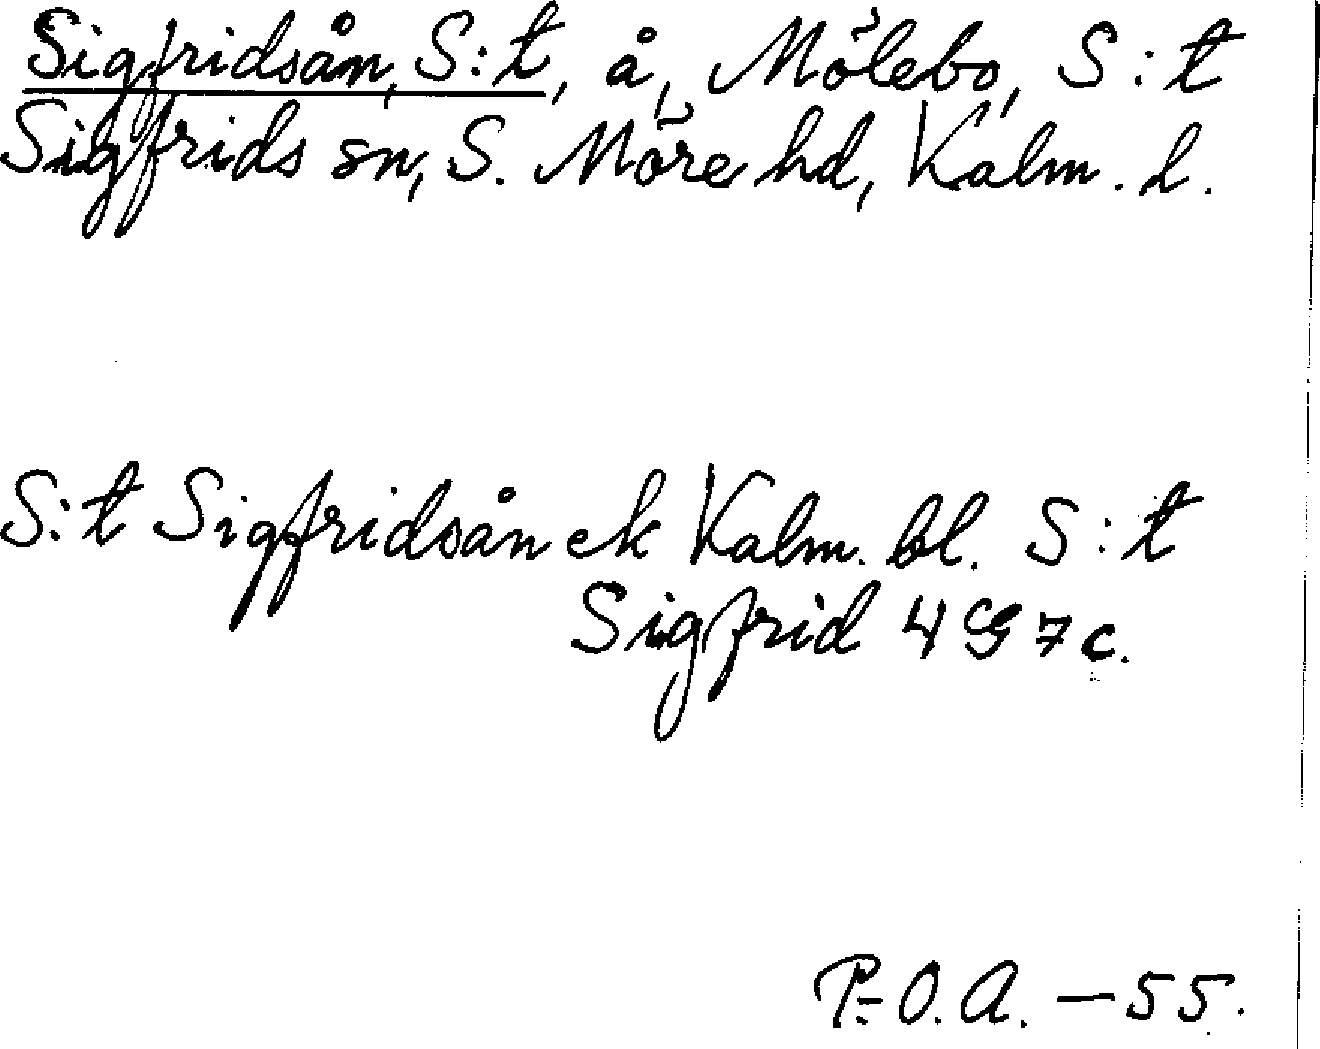 Sigfridsån, S:t, å, Mölebo, S:t
Sigfrids sn, S. Möre hd, Kalm. l.
S:t Sigfridsån ek Kalm. bl. S:t
Sigfrid 4 G 7 c.
P.-O. A. — 55.